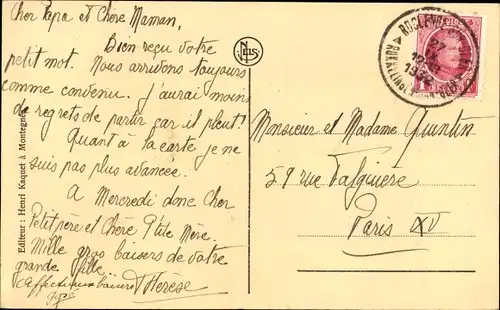 Cher Papa et Chère Maman,
Bien reçu votre
petit mot. Nous arrivons toujours
comme convenu. J'aurai moins
de regrets de partir car il pleut!
Quant à la carte je ne
suis pas plus avancée.
A Mercredi donc Cher
Petit père et Chère P'tite Mère.
Mille gros baisers de votre
grande fille
Thérèse
Affectueux baisers
Editeur: Henri Kaquet à Montegnée
NELS
1922
Monsieur et Madame Quintin
59 rue Falguière
Paris XV